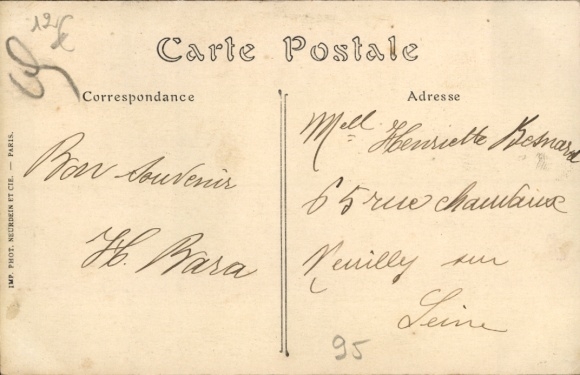 12
Carte Postale
Correspondance
Adresse
Bon Souvenir
H. Bara
Mell Henriette Besnard
65 rue
Neuilly sur
Seine
95
IMP. PHOT. NEURDEIN ET CIE. — PARIS.